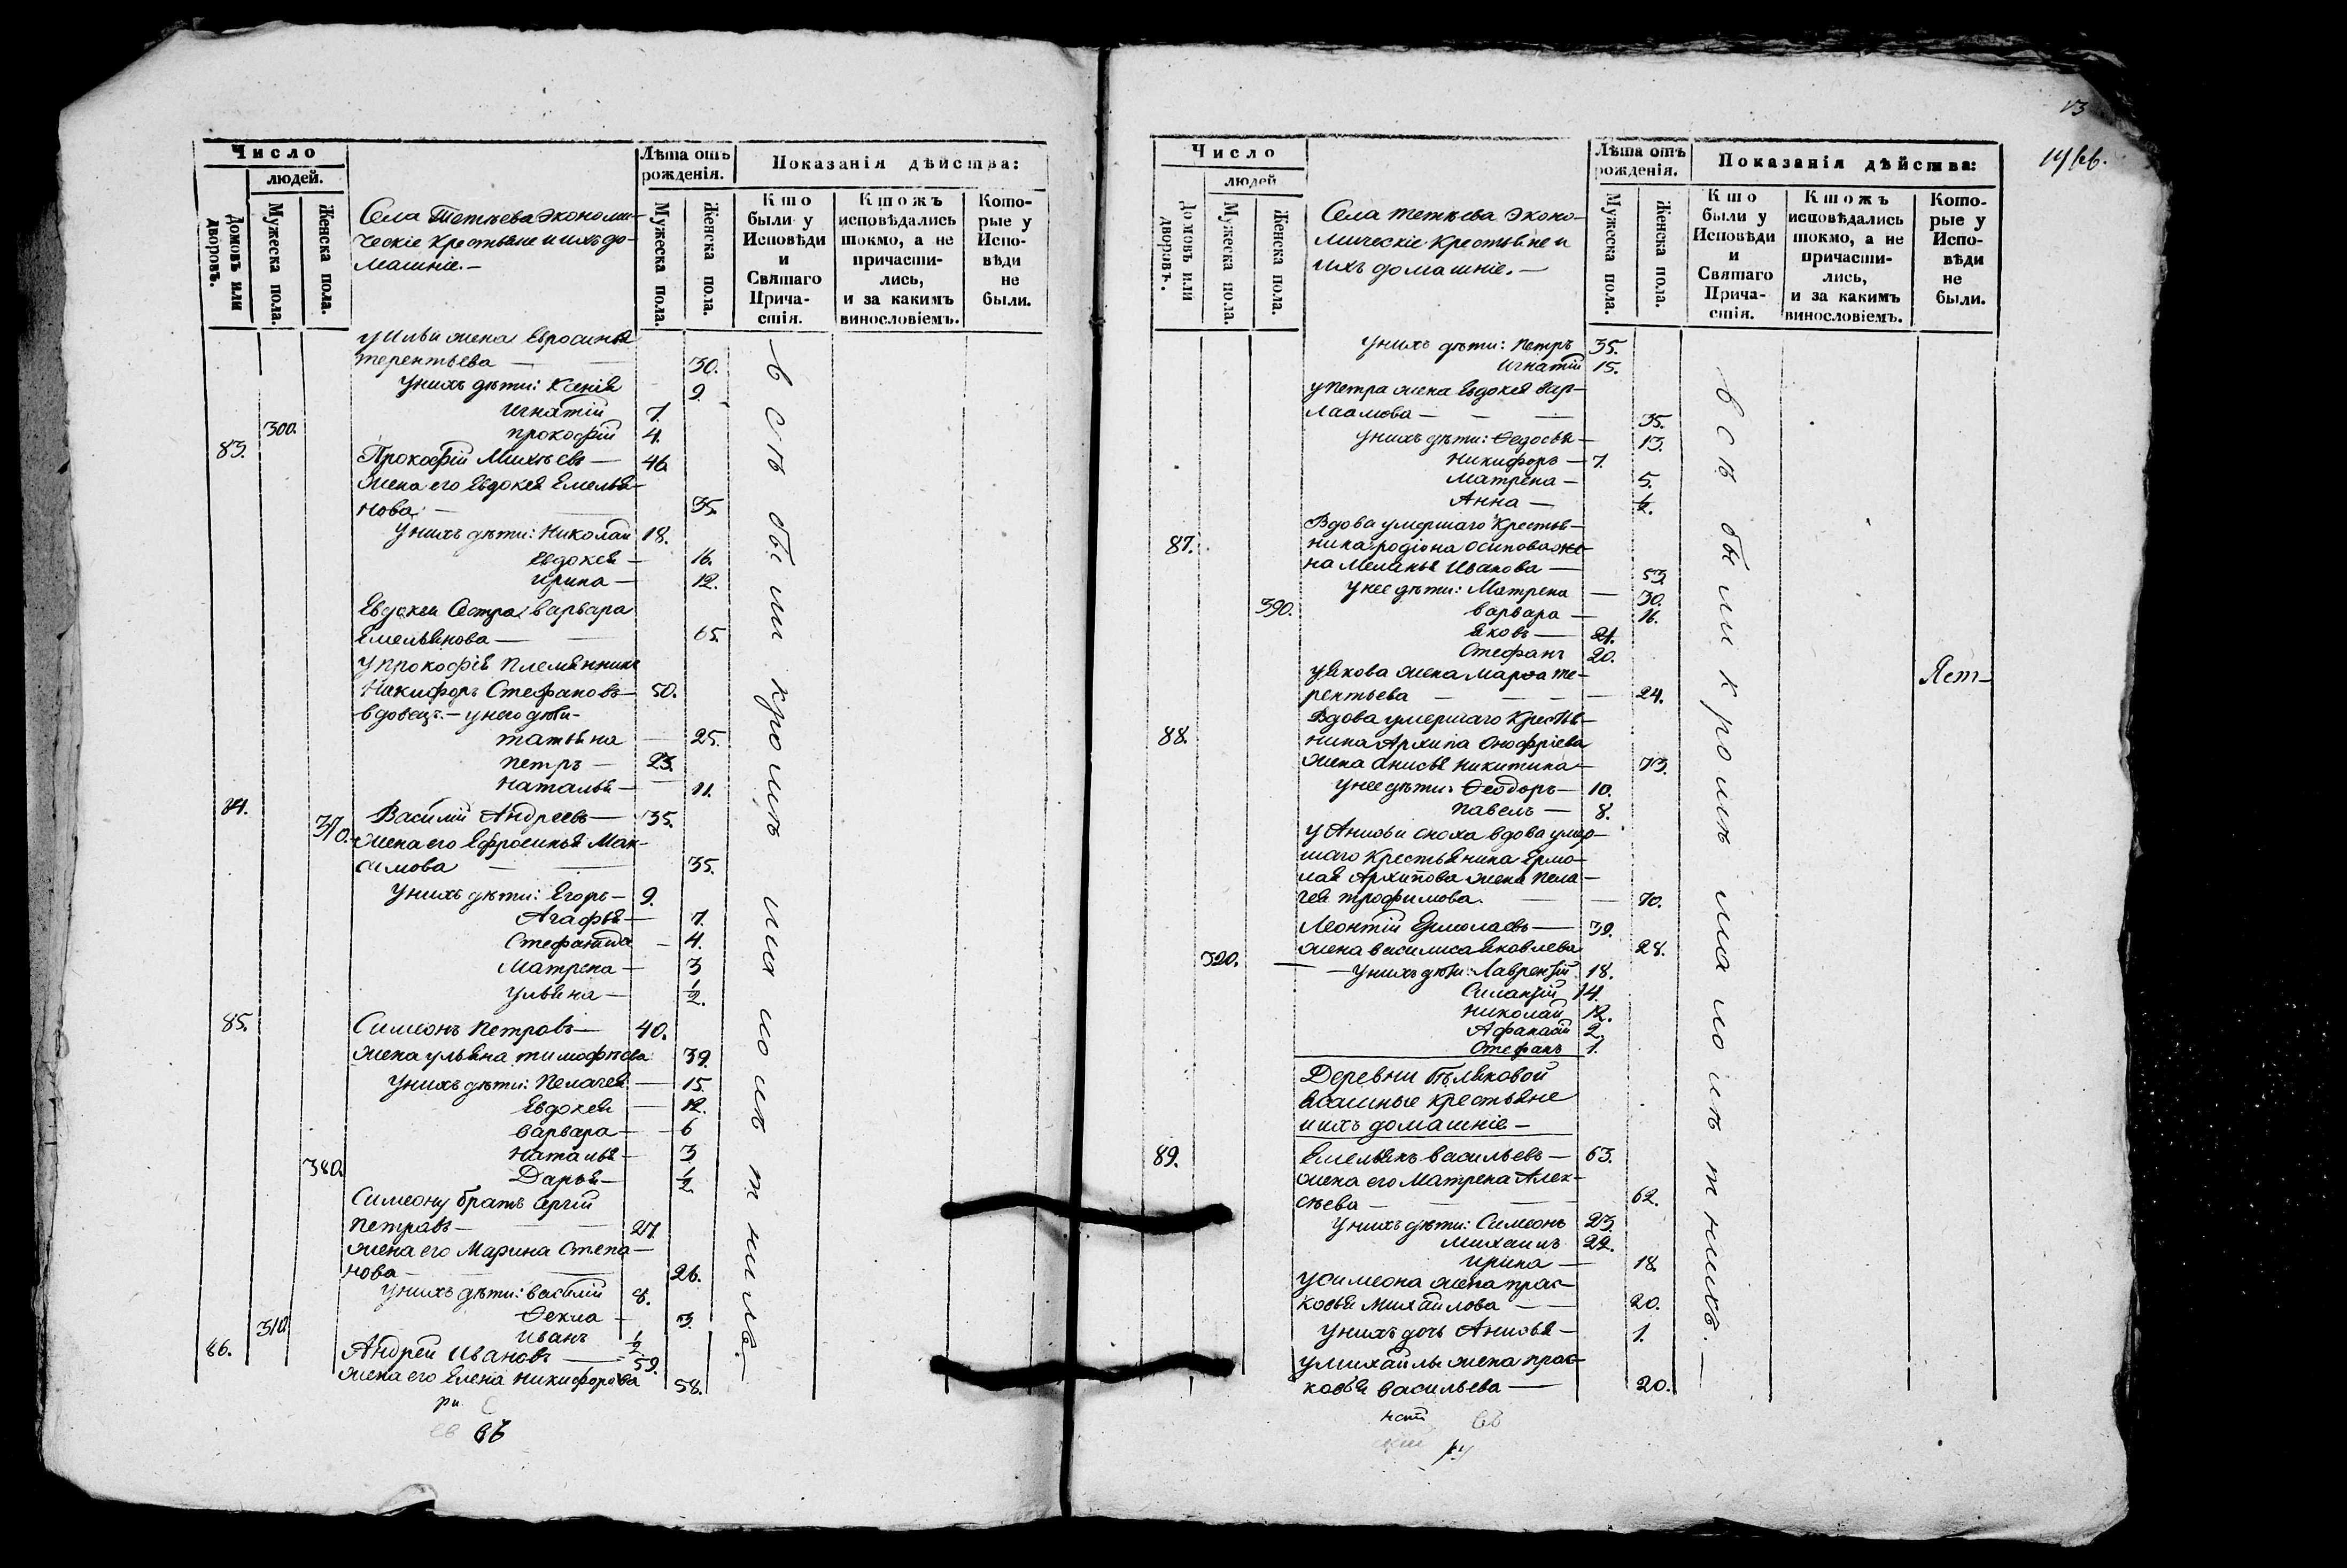 Число
людей.
Домовъ или дворовъ.
Мужеска пола.
Женска пола.
Села Тетѣева Экономи-
ческіе Крестьяне и ихъ до-
машніе.—
Лѣта отъ
рожденія.
Мужеска пола.
Женска пола.
Показанія дѣйства:
Кто
были у
Исповѣди
и
Святаго
Прича-
стія.
Ктожъ
исповѣдались
токмо, а не
причасти-
лись,
и за какимъ
винословіемъ.
Кото-
рые у
Испо-
вѣди
не
были.
у Ильи жена Евросинья
Терентьева — 30.
у нихъ дѣти: Ксенія 9
Игнатій 7.
300. Прокофій 4.
83. Прокофій Михѣевъ — 46.
жена его Евдокея Емелья-
нова — 35.
у нихъ дѣти: Николай 18.
Евдокея — 16.
Ирина — 12.
Евдокеи Сестра Варвара
Емельянова — 65.
у Прокофія Племянникъ
Никифоръ Стефановъ — 50.
вдовецъ. — у него дѣти-
Татьяна — 25.
Петръ — 23.
Наталья — 11.
84. Василій Андреевъ — 35.
370. жена его Ефросинья Мак-
симова — 35.
у нихъ дѣти: Егоръ — 9.
Агафья — 7.
Стефанида — 4.
Матрена — 3
Ульяна — ½.
85. Симеонъ Петровъ — 40.
жена Ульяна Тимофѣева 39.
у нихъ дѣти: Пелагея — 15.
Евдокея — 12.
Варвара — 6
Наталья — 3
380. Дарья — ½
Симеону братъ Сергій
Петровъ — 27.
жена его Марина Степа-
нова — 26.
у нихъ дѣти: Василій 8.
Ѳекла — 3.
310. Иванъ ½
86. Андрей Ивановъ — 59.
жена его Елена Никифорова 58.
всѣ были кромѣ малолѣтнихъ.—
вв
13
Число
людей
Домовъ или дворовъ.
Мужеска пола.
Женска пола.
Села Тетѣева Эконо-
мическіе Крестьяне и
ихъ домашніе.—
Лѣта отъ
рожденія.
Мужеска пола.
Женска пола.
Показанія дѣйства:
Кто
были у
Исповѣди
и
Святаго
Прича-
стія.
Ктожъ
исповѣдались
токмо, а не
причасти-
лись,
и за какимъ
винословіемъ.
Кото-
рые у
Испо-
вѣди
не
были.
у нихъ дѣти: Петръ 35.
Игнатій 15.
у Петра жена Евдокея Вар-
лаамова — 35.
у нихъ дѣти: Ѳедосья — 13.
Никифоръ — 7.
Матрена — 5.
Анна — ½.
Вдова умершаго Крестья-
87. нина Родіона Осипова же-
на Меланья Иванова — 53.
у нее дѣти: Матрена — 30.
390. Варвара — 16.
Яковъ — 24.
Стефанъ 20.
у Якова жена Марѳа Те-
рентьева — 24.
Вдова умершаго Крестья-
88. нина Архипа Онофріева
жена Анисья Никитина — 73.
у нее дѣти: Ѳеодоръ — 10.
Павелъ — 8.
у Анисьи сноха вдова умер-
шаго Крестьянина Ермо-
лая Архипова жена Пела-
гея Трофимова. — 70.
Леонтій Ермолаевъ — 39.
жена Василиса Яковлева 28.
320. — у нихъ дѣти: Лаврентій 18.
14.
Николай 12.
Афанасій 2
Стефанъ 1.
Деревни Бѣляковой
ясашные крестьяне
и ихъ домашніе —
89. Емельянъ Васильевъ — 63.
жена его Матрена Алек-
сѣева — 62.
у нихъ дѣти: Симеонъ 23.
Михаилъ 22.
Ирина — 18.
у Симеона жена Прас-
ковья Михайлова — 20.
у нихъ дочь Анисья — 1.
у Михайлы жена Прас-
ковья Васильева — 20.
всѣ были кромѣ малолѣтнихъ.—